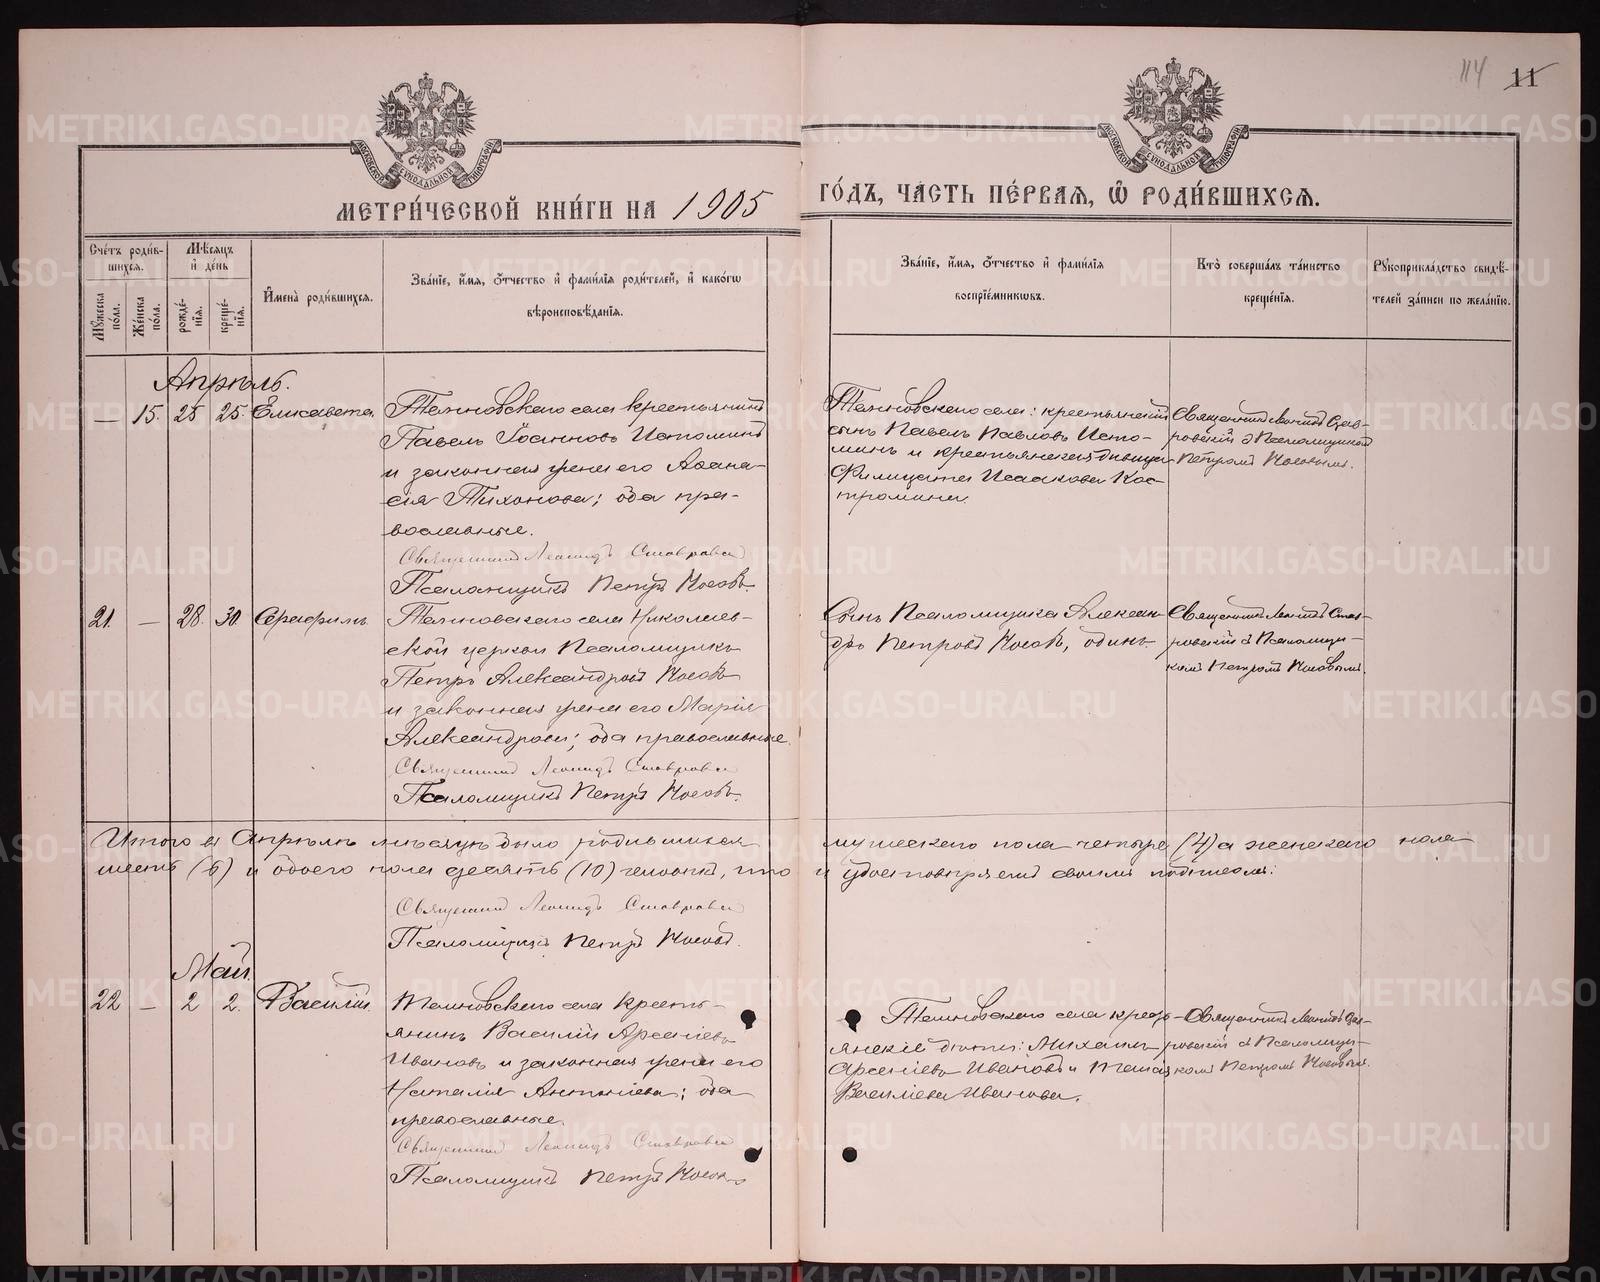 114 11
МЕТРИ́ЧЕСКОЙ КНИ́ГИ НА 1905 ГО́ДЪ, ЧА́СТЬ ПЕ́РВАЯ, Ѡ҆ РОДИ́ВШИХСЯ.
МОСКОВСКОЙ СѴНОДАЛЬНОЙ ТИПОГРАФІИ
МОСКОВСКОЙ СѴНОДАЛЬНОЙ ТИПОГРАФІИ
Сче́тъ роди́в-
шихся.
Мꙋжеска по́ла.
Же́нска по́ла.
Мѣ́сяцъ
и҆ де́нь
рожде́-
нїя.
креще́-
нїя.
И҆мена̀ роди́вшихся.
Зва́нїе, и҆́мя, ѻ҆́тчество и҆ фами́лїя роди́телей, и҆ како́гѡ
вѣроисповѣ́данїя.
Зва́нїе, и҆́мя, ѻ҆́тчество и҆ фами́лїя
воспрїе́мникѡвъ.
Кто̀ соверша́лъ та́инство
креще́нїя.
Рꙋкоприкла́дство свидѣ́-
телей за́писи по жела́нїю.
Апрѣль.
— 15. 25 25. Елисавета
села крестьянинъ
Павелъ Іоанновъ Истоминъ
и законная жена его Афана-
сія Тихонова; оба пра-
вославные.
Священникъ Леонидъ Ставровскій
Псаломщикъ Петръ Носовъ.
села: крестьянскій
сынъ Павелъ Павловъ Исто-
минъ и крестьянская дѣвица
Фелицата Исаакова Кос-
тромина.
Священникъ Леонидъ Став-
ровскій съ Псаломщикомъ
Петромъ Носовымъ.
21. — 28. 30. Серафимъ
села Николаев-
ской церкви Псаломщикъ
Петръ Александровъ Носовъ
и законная жена его Марія
Александрова; оба православные.
Священникъ Леонидъ Ставровскій
Псаломщикъ Петръ Носовъ.
Сынъ Псаломщика Алексан-
дръ Петровъ Носовъ, одинъ.
Священникъ Леонидъ Став-
ровскій съ Псаломщи-
комъ Петромъ Носовымъ.
Итого въ Апрѣлѣ мѣсяцѣ было родившихся мужескаго пола четыре (4) а женскаго пола
шесть (6) и обоего пола десять (10) человѣкъ, что и удостовѣряемъ своими подписями:
Священникъ Леонидъ Ставровскій
Псаломщикъ Петръ Носовъ.
Май.
22 — 2 2. Василій.
села Кресть-
янинъ Василій Арсеніевъ
Ивановъ и законная жена его
Наталія Антоніева; оба
православные.
Священникъ Леонидъ Ставровскій
Псаломщикъ Петръ Носовъ
села кресть-
янскіе дѣти: Михаилъ
Арсеніевъ Ивановъ и
Васильева Иванова.
Священникъ Леонидъ Став-
ровскій съ Псаломщи-
комъ Петромъ Носовымъ.
METRIKI.GASO-URAL.RU